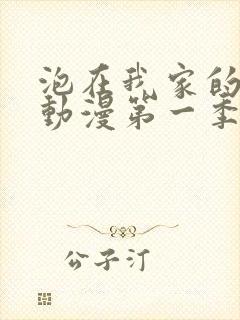 泡在我家的
動漫第一季
公子汀